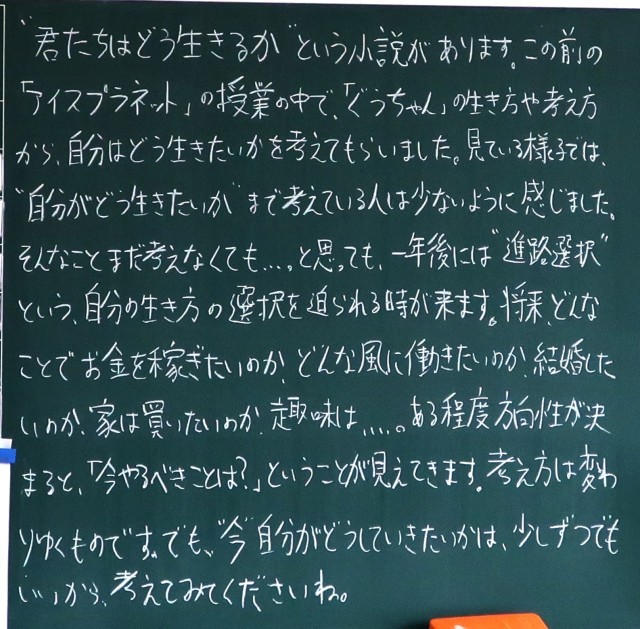 "君たちはどう生きるか"という小説があります。この前の
「アイスプラネット」の授業の中で、「ぐうちゃん」の生き方や考え方
から、自分はどう生きたいかを考えてもらいました。見ている様子では、
"自分がどう生きたいか"まで考えている人は少ないように感じました。
そんなことまだ考えなくても…。と思っても、一年後には"進路選択"
という、自分の生き方の選択を迫られる時が来ます。将来、どんな
ことでお金を稼ぎたいのか、どんな風に働きたいのか、結婚した
いのか、家は買いたいのか、趣味は……。ある程度方向性が決
まると、「今やるべきことは？」ということが見えてきます。考え方は変わ
りゆくものです。でも、"今"自分がどうしていきたいかは、少しずつでも
いいから、考えてみてくださいね。